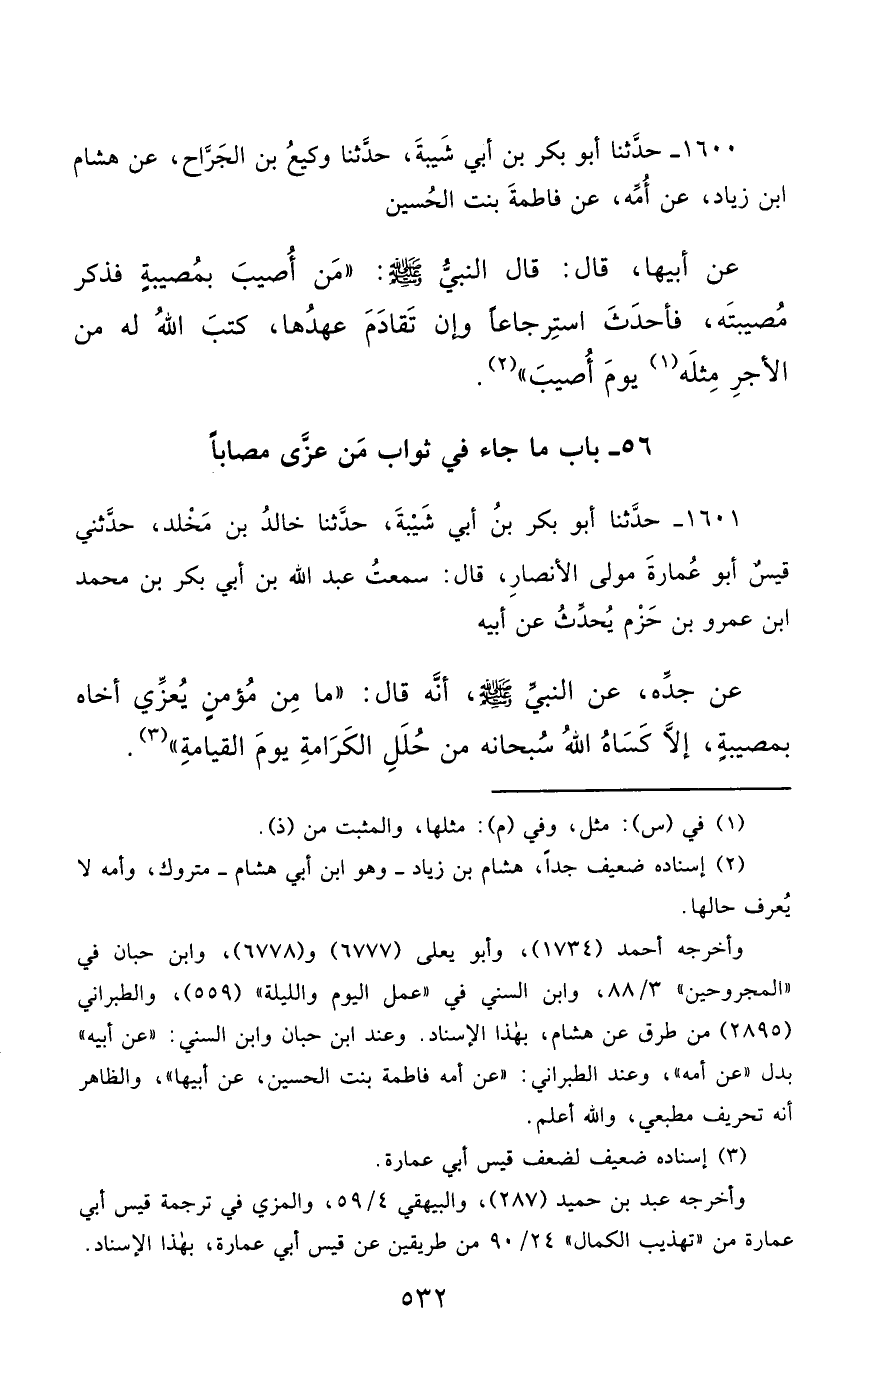 ١٦٠٠ـ حدَّثنا أبو بكر بن أبي شَيبةَ، حدَّثنا وكيعُ بن الجَرَّاح، عن هشام
ابن زياد، عن أُمِّه، عن فاطمةَ بنت الحُسين
عن أبيها، قال: قال النبيُّ ﷺ: «مَن أُصيبَ بمُصيبةٍ فذكر
مُصيبتَه، فأحدَثَ استِرجاعاً وإن تَقادَمَ عهدُها، كتبَ اللهُ له من
الأجرِ مِثلَه(١) يومَ أُصيبَ»(٢).
٥٦ـ باب ما جاء في ثواب مَن عزَّى مصاباً
١٦٠١ـ حدَّثنا أبو بكر بنُ أبي شَيْبةَ، حدَّثنا خالدُ بن مَخْلد، حدَّثني
قيسٌ أبو عُمارةَ مولى الأنصارِ، قال: سمعتُ عبد الله بن أبي بكر بن محمد
ابن عمرو بن حَزْم يُحدِّثُ عن أبيه
عن جدِّه، عن النبيِّ ﷺ، أنَّه قال: «ما مِن مُؤمنٍ يُعزِّي أخاه
بمصيبةٍ، إلاَّ كَسَاهُ اللهُ سُبحانه من حُلَلِ الكَرَامةِ يومَ القيامةِ»(٣).
(١) في (س): مثل، وفي (م): مثلها، والمثبت من (ذ).
(٢) إسناده ضعيف جداً، هشام بن زياد ـ وهو ابن أبي هشام ـ متروك، وأمه لا
يُعرف حالها.
وأخرجه أحمد (١٧٣٤)، وأبو يعلى (٦٧٧٧) و(٦٧٧٨)، وابن حبان في
«المجروحين» ٨٨/٣، وابن السني في «عمل اليوم والليلة» (٥٥٩)، والطبراني
(٢٨٩٥) من طرق عن هشام، بهٰذا الإسناد. وعند ابن حبان وابن السني: «عن أبيه»
بدل «عن أمه»، وعند الطبراني: «عن أمه فاطمة بنت الحسين، عن أبيها»، والظاهر
أنه تحريف مطبعي، والله أعلم.
(٣) إسناده ضعيف لضعف قيس أبي عمارة.
وأخرجه عبد بن حميد (٢٨٧)، والبيهقي ٥٩/٤، والمزي في ترجمة قيس أبي
عمارة من «تهذيب الكمال» ٩٠/٢٤ من طريقين عن قيس أبي عمارة، بهٰذا الإسناد.
٥٣٢